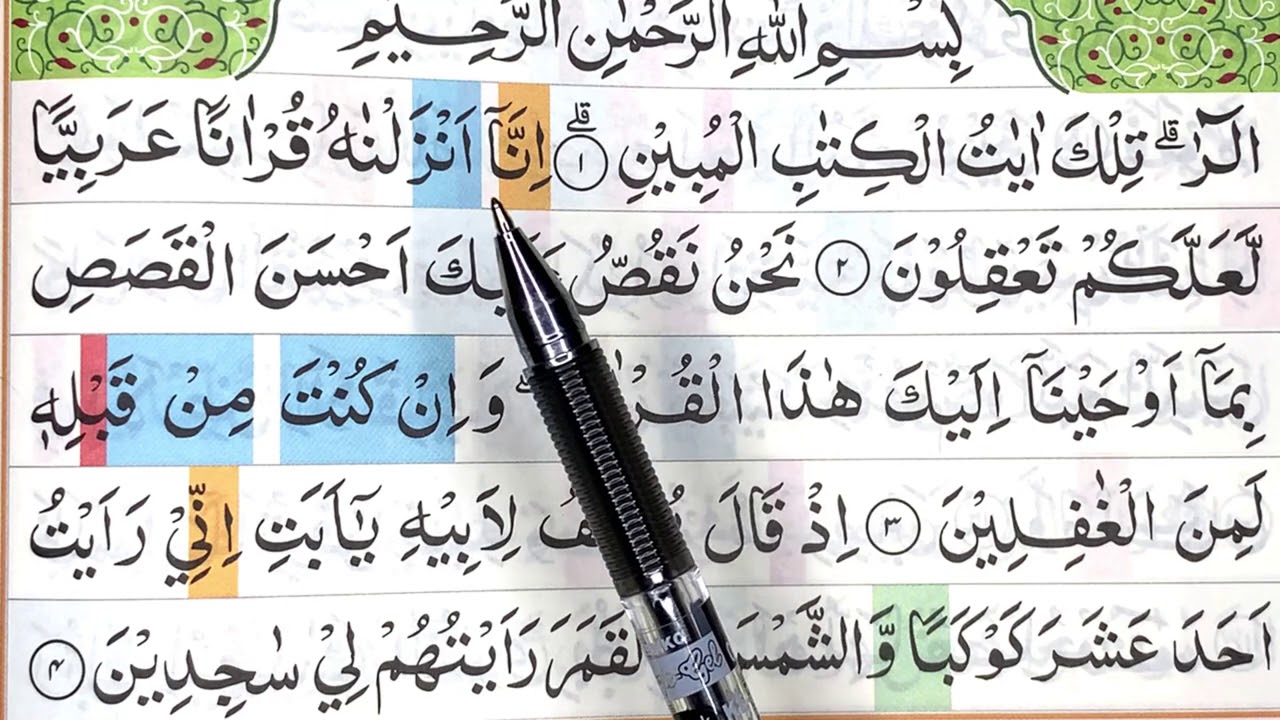 بِسْمِ اللّٰهِ الرَّحْمٰنِ الرَّحِيْمِ
الٓرٰ ۚ تِلْكَ اٰيٰتُ الْكِتٰبِ الْمُبِيْنِ ۟ۚ ١ اِنَّاۤ اَنْزَلْنٰهُ قُرْاٰنًا عَرَبِيًّا
لَّعَلَّكُمْ تَعْقِلُوْنَ ٢ نَحْنُ نَقُصُّ اَحْسَنَ الْقَصَصِ
بِمَاۤ اَوْحَيْنَاۤ اِلَيْكَ هٰذَا وَاِنْ كُنْتَ مِنْ قَبْلِهٖ
لَمِنَ الْغٰفِلِيْنَ ٣ اِذْ قَالَ لِاَبِيْهِ يٰۤاَبَتِ اِنِّيْ رَاَيْتُ
اَحَدَ عَشَرَ كَوْكَبًا وَّالشَّمْسَ رَاَيْتُهُمْ لِيْ سٰجِدِيْنَ ٤